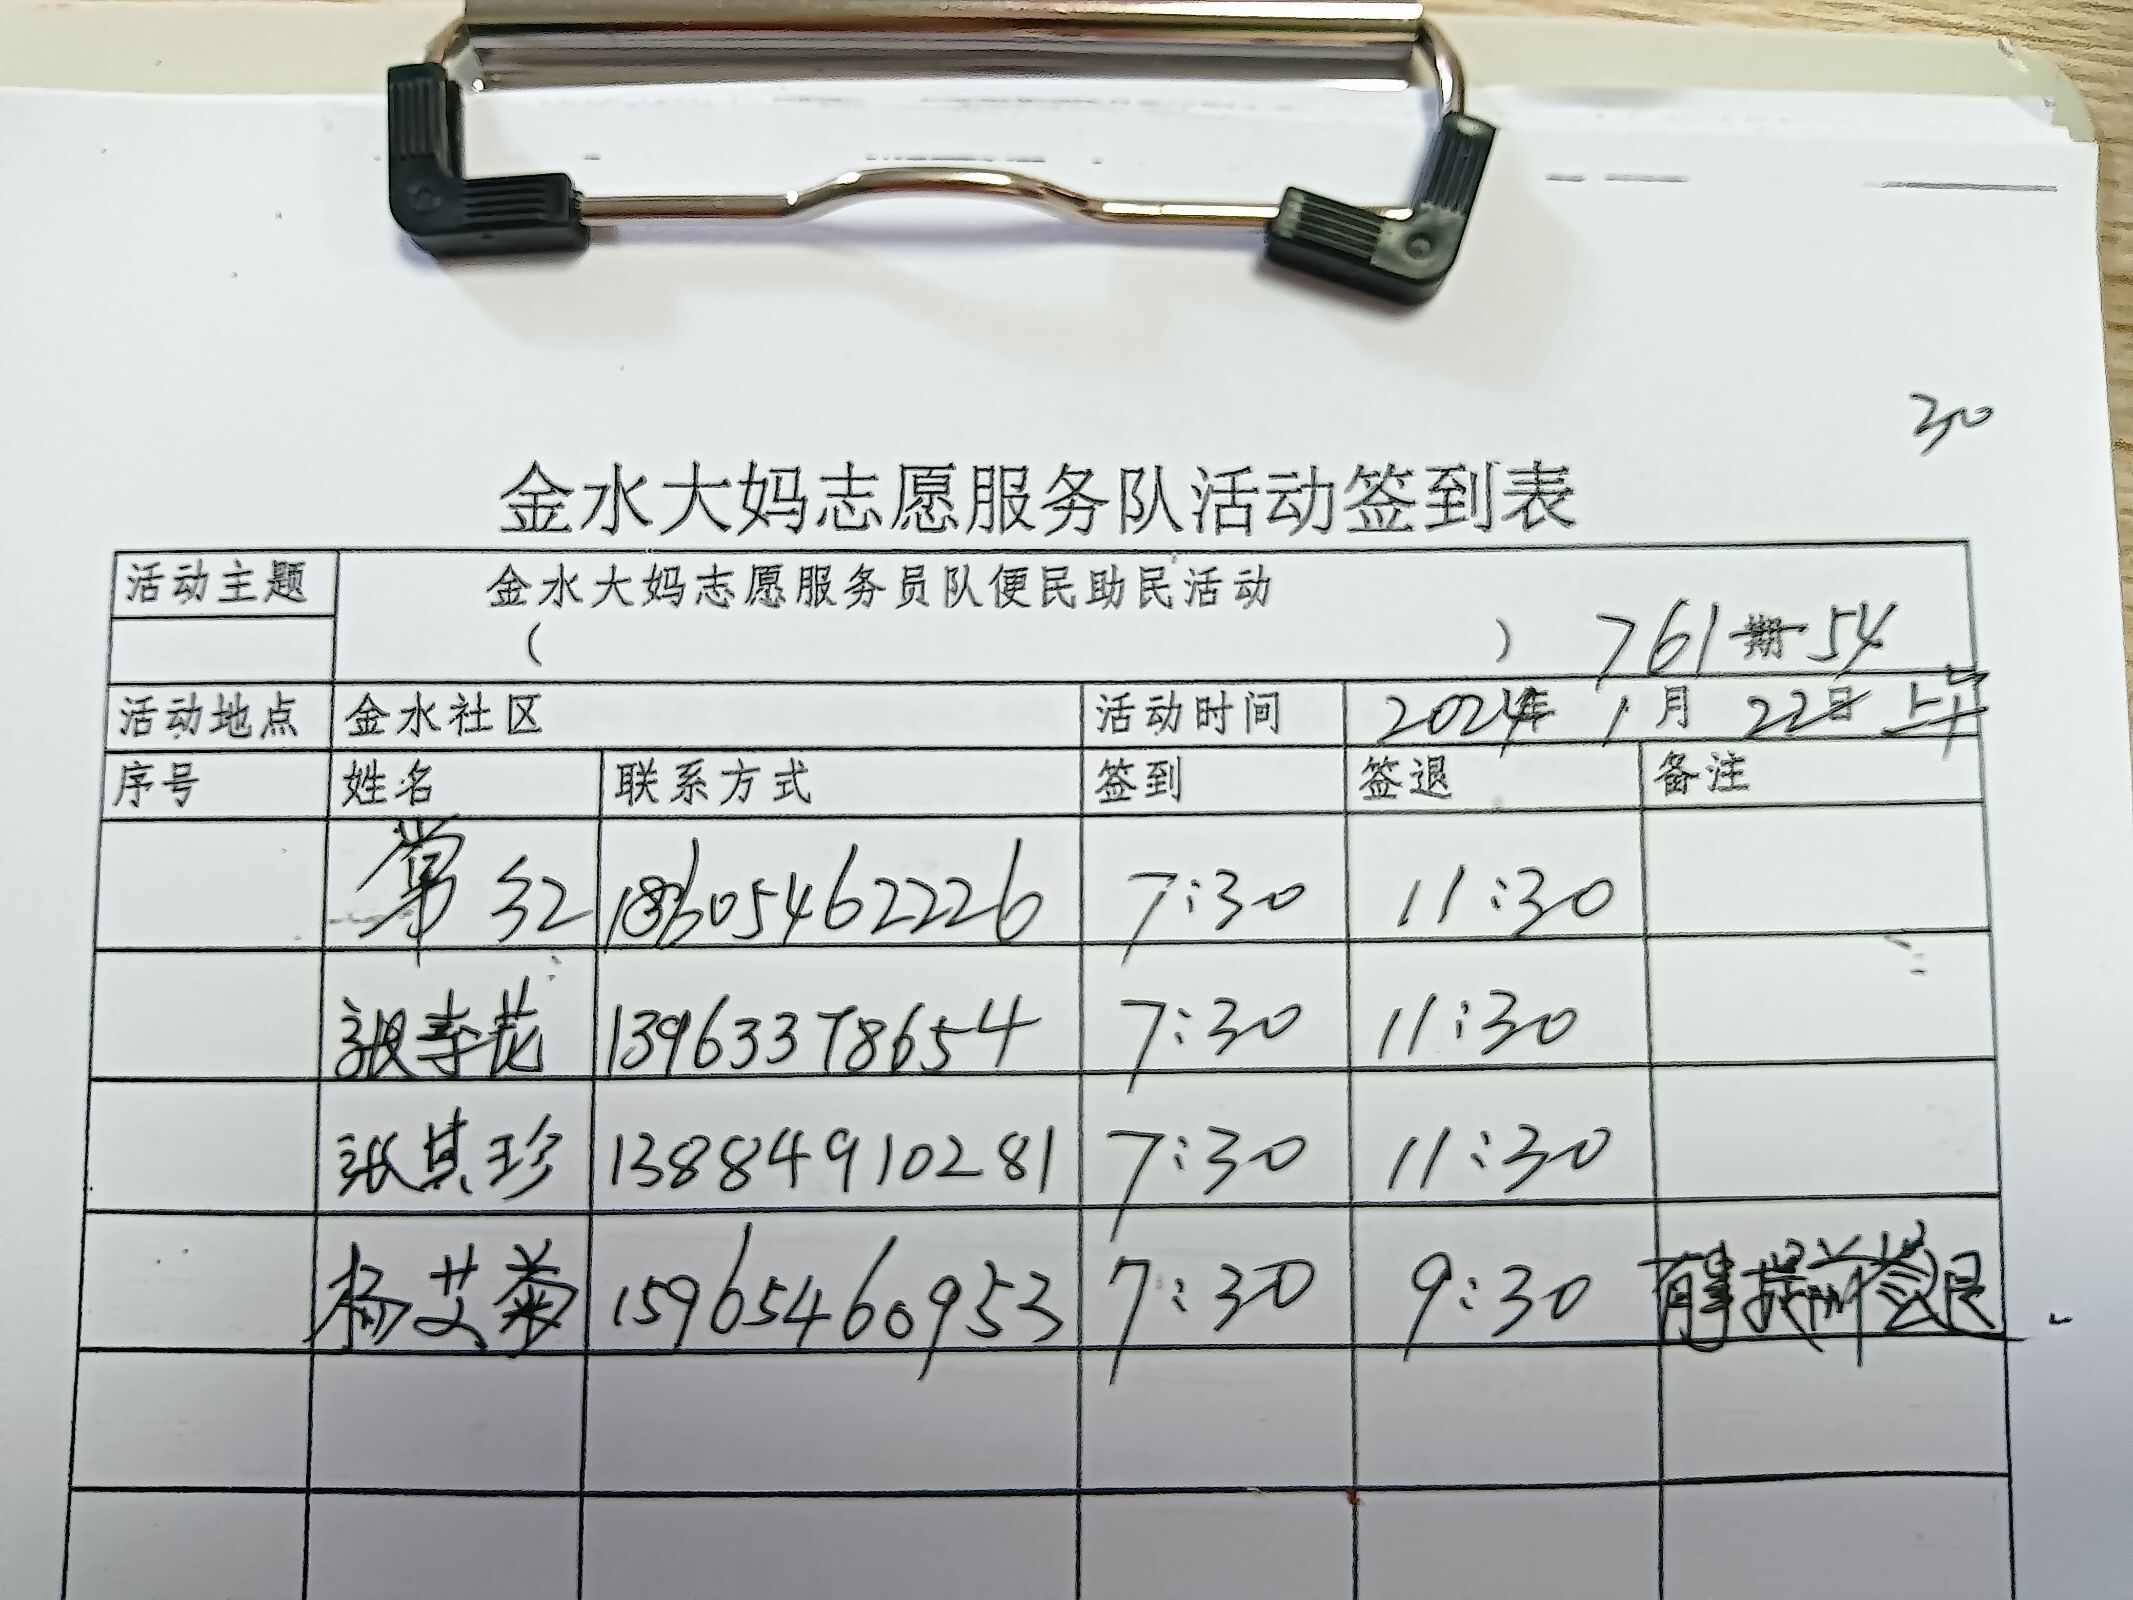 30
金水大妈志愿服务队活动签到表
活动主题 金水大妈志愿服务员队便民助民活动
( ) 761期54
活动地点 金水社区 活动时间 2024年 1月 22日 上午
序号 姓名 联系方式 签到 签退 备注
常红 18605462226 7:30 11:30
张春花 13963378654 7:30 11:30
张其珍 13884910281 7:30 11:30
杨艾菊 15965460953 7:30 9:30 有事提前签退